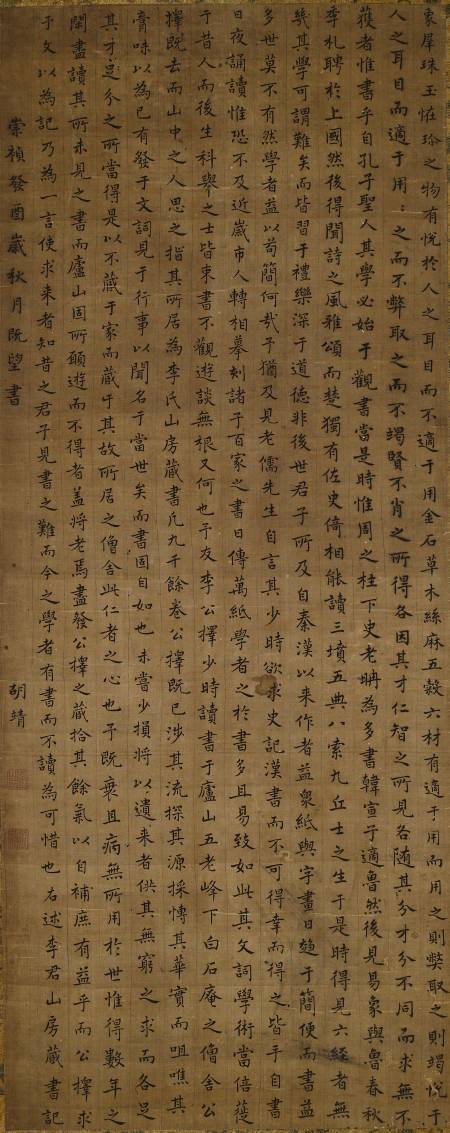 象犀珠玉怪珍之物有悅於人之耳目而不適于用金石草木絲麻五穀六材有適于用而用之則弊取之則竭悅于
人之耳目而適于用:之而不弊取之而不竭賢不肖之所得各因其才仁智之所見各隨其分才分不同而求無不
獲者惟書乎自孔子聖人其學必始于觀書當是時惟周之柱下史老聃為多書韓宣子適魯然後見易象與魯春秋
季札聘於上國然後得聞詩之風雅頌而楚獨有佐史倚相能讀三墳五典八索九丘士之生于是時得見六經者無
幾其學可謂難矣而皆習于禮樂深于道德非後世君子所及自秦漢以來作者益衆紙與字畫日趨于簡便而書益
多世莫不有然學者益以苟簡何哉予猶及見老儒先生自言其少時欲求史記漢書而不可得幸而得之皆手自書
日夜誦讀惟恐不及近歲市人轉相摹刻諸子百家之書日傳萬紙學者之於書多且易致如此其文詞學術當倍蓰
于昔人而後生科舉之士皆束書不觀遊談無根又何也予友李公擇少時讀書于廬山五老峰下白石庵之僧舍公
擇既去而山中之人思之指其所居為李氏山房藏書凡九千餘卷公擇既已涉其流探其源採博其華實而咀嚼其
膏味以為已有發于文詞見于行事以聞名于當世矣而書固自如也未嘗少損將以遺來者供其無窮之求而各足
其才足分之所當得是以不藏于家而藏于其故所居之僧舍此仁者之心也予既衰且病無所用於世惟得數年之
閒盡讀其所未見之書而廬山固所願遊而不得者蓋將老焉盡發公擇之藏拾其餘氣以自補庶有益乎而公擇求
于文以為記乃為一言使求來者知昔之君子見書之難而今之學者有書而不讀為可惜也右述李君山房藏書記
崇禎癸酉歲秋月既望書 胡靖